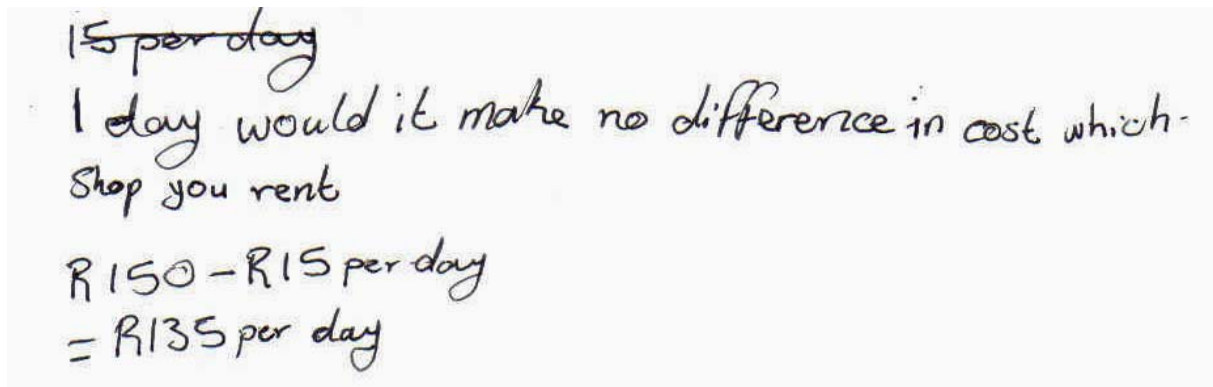 15 per day
1 day would it make no difference in cost which
Shop you rent
R150 - R15 per day
= R135 per day